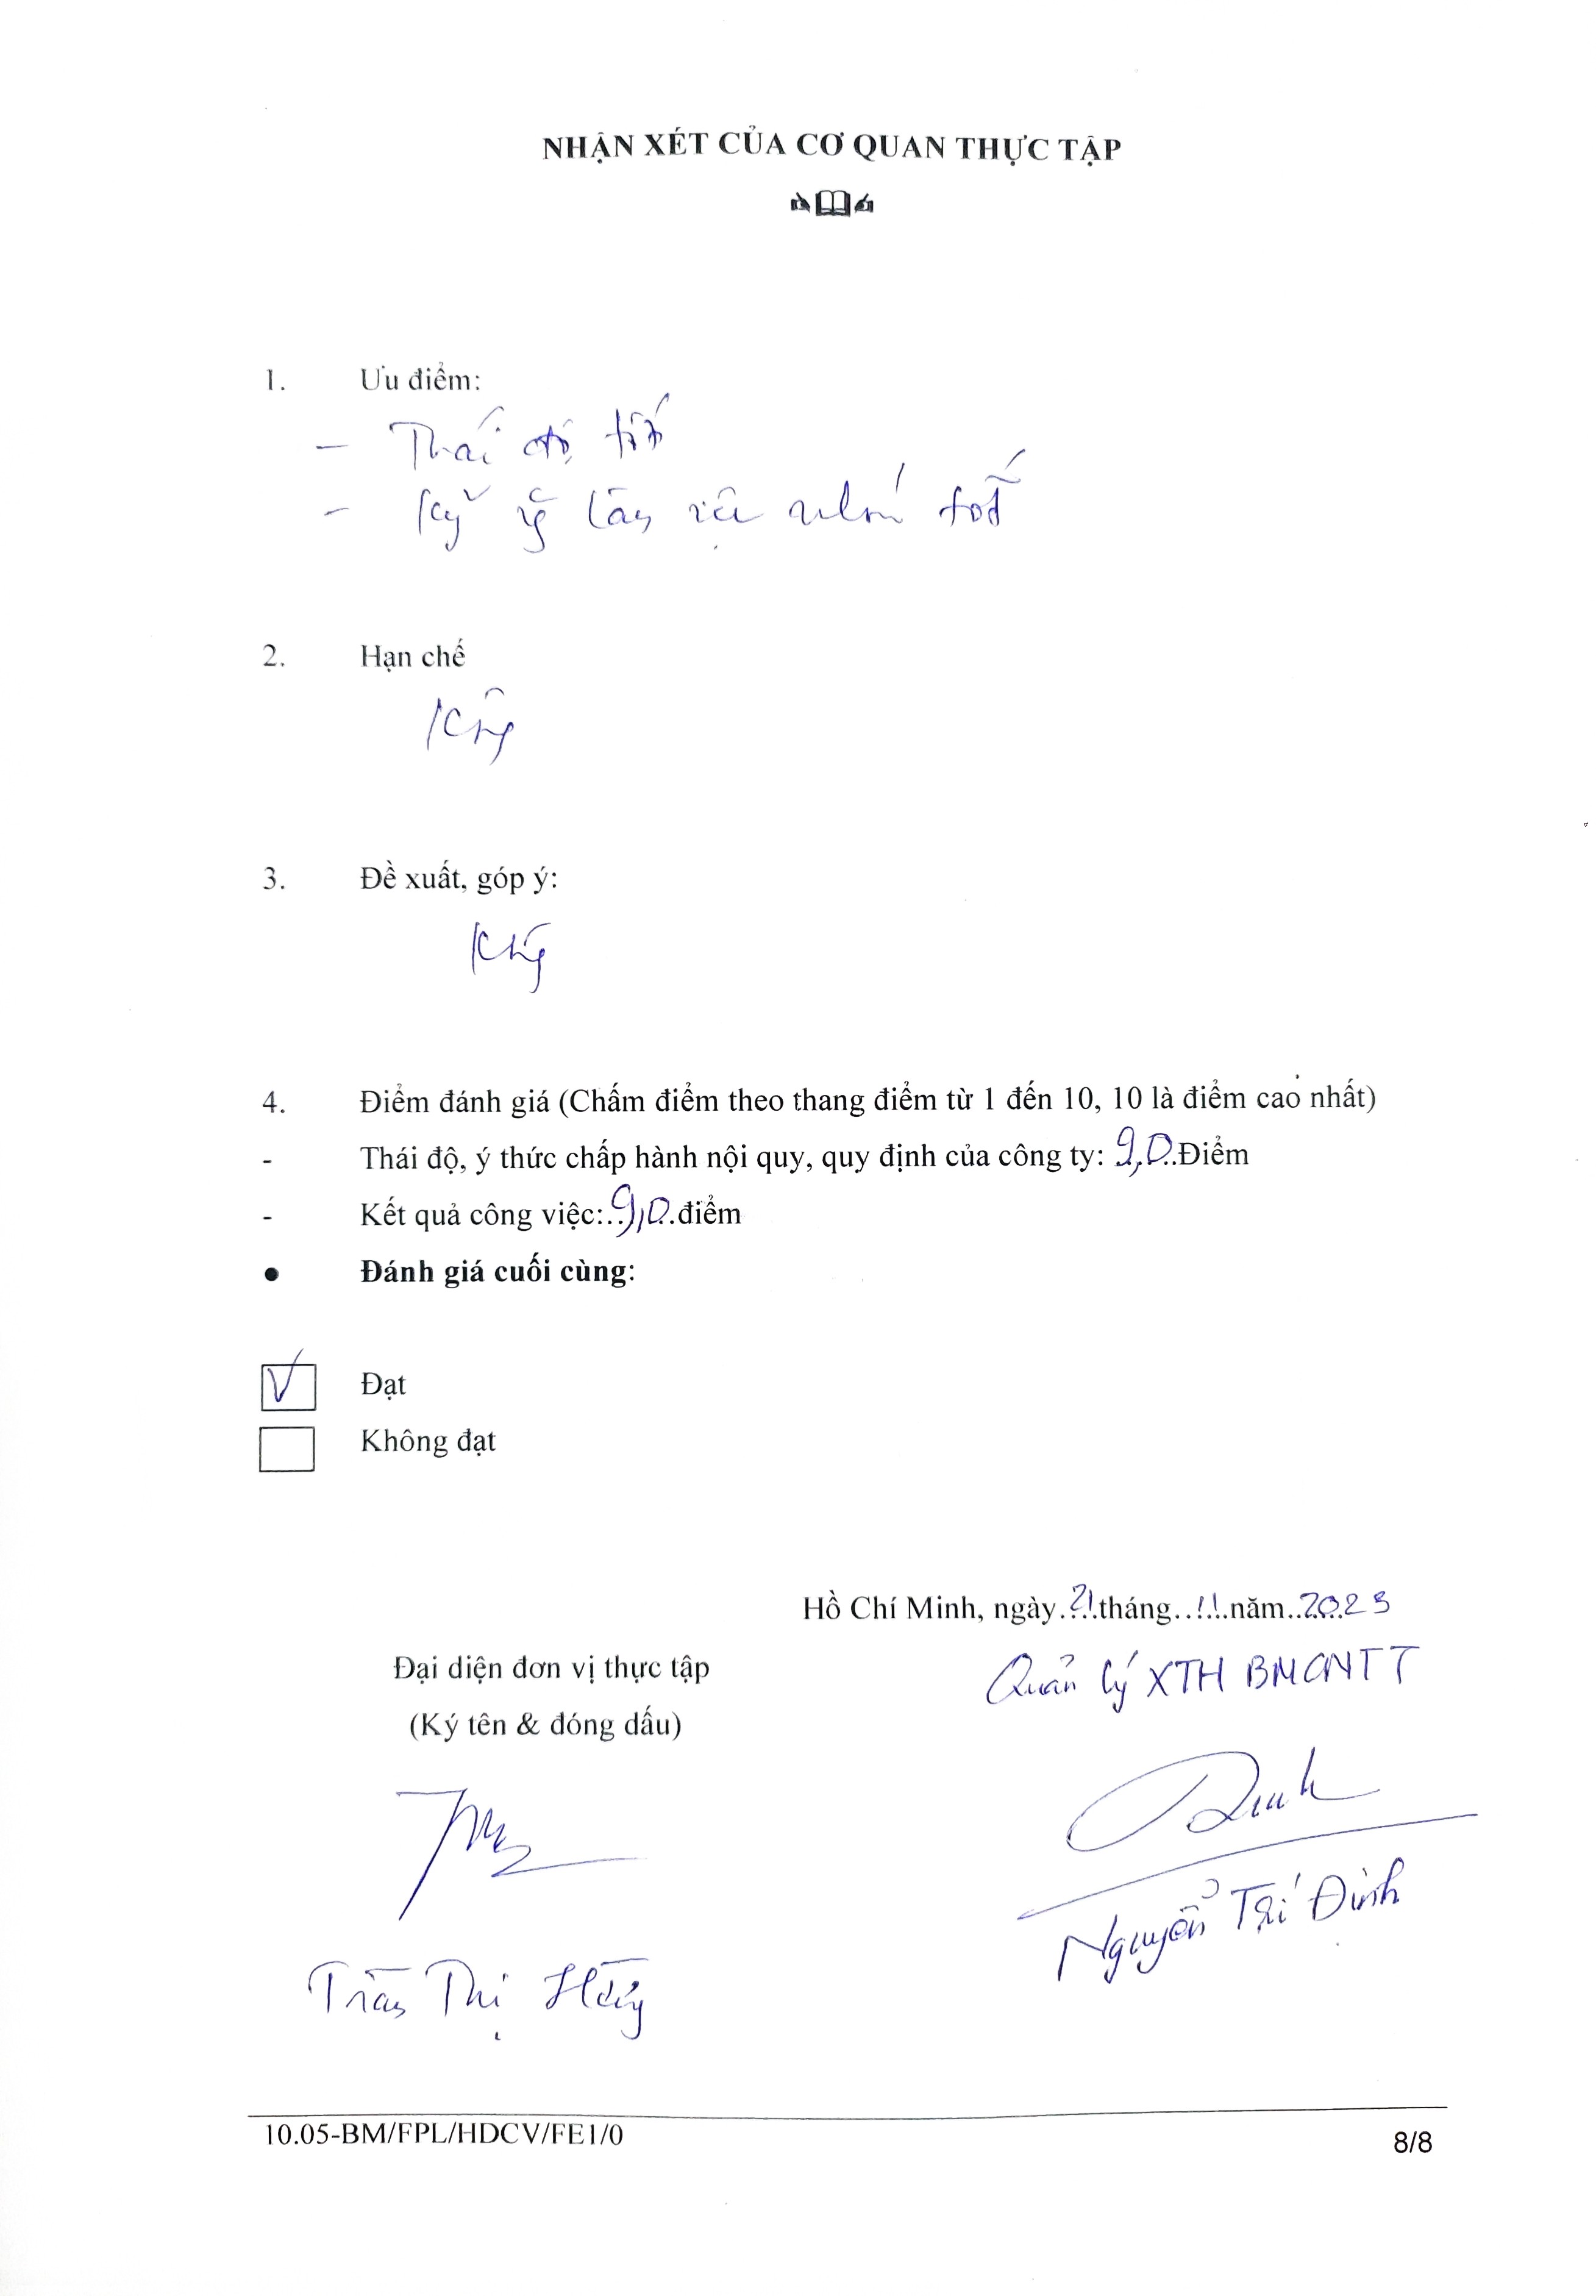 NHẬN XÉT CỦA CƠ QUAN THỰC TẬP
1. Ưu điểm:
- Thái độ tốt
- Kỹ làm việc nhóm tốt
2. Hạn chế
Không
3. Đề xuất, góp ý:
Không
4. Điểm đánh giá (Chấm điểm theo thang điểm từ 1 đến 10, 10 là điểm cao nhất)
- Thái độ, ý thức chấp hành nội quy, quy định của công ty: 9,0..Điểm
- Kết quả công việc:..9,0..điểm
● Đánh giá cuối cùng:
V Đạt
Không đạt
Hồ Chí Minh, ngày.21.tháng..11..năm..2023
Đại diện đơn vị thực tập
Quản lý XTH BMCNTT
(Ký tên & đóng dấu)
Nguyễn Trí Định
Trần Thị
10.05-BM/FPL/HDCV/FE1/0
8/8